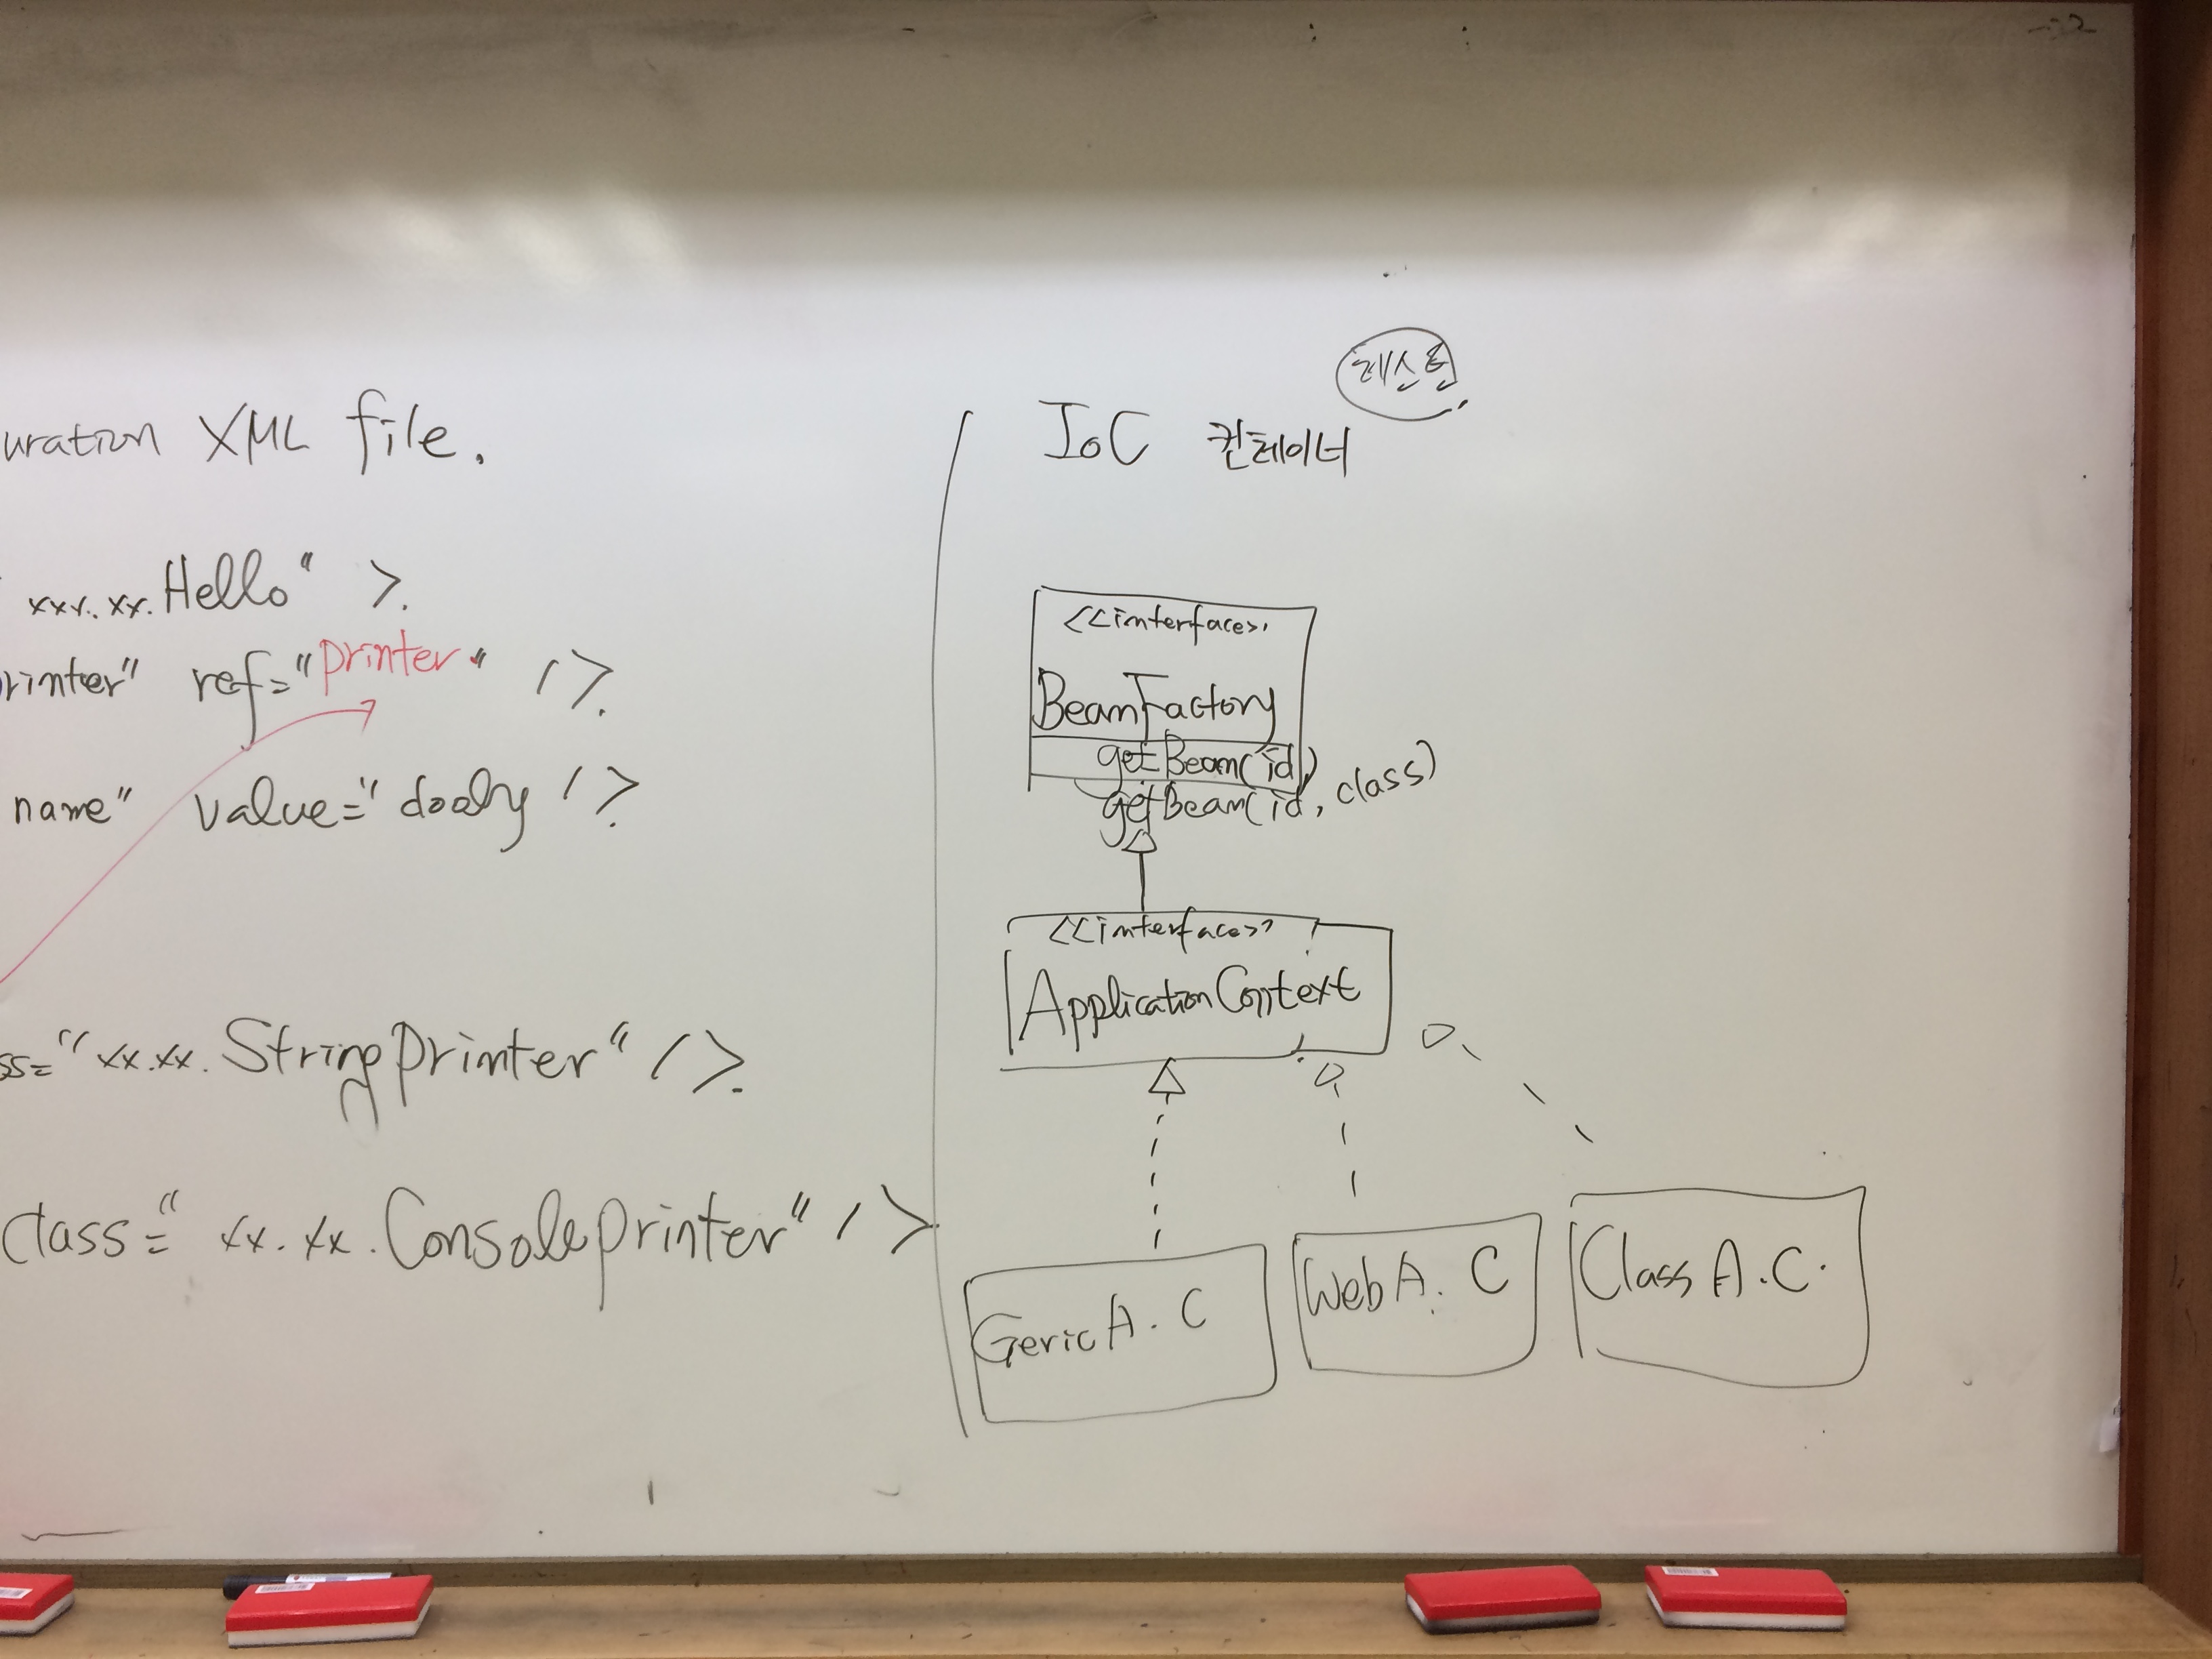 uration XML file.
xxx.xx.Hello" >.
rinter" ref="printer" />.
name" value="dooly />
ss="xx.xx.StringPrinter" />.
class="xx.xx.ConsolePrinter" />
IoC 컨테이너
<<interface>>
BeanFactory
getBean(id)
getBean(id, class)
<<interface>>
ApplicationContext
GericA.C
WebA.C
ClassA.C.